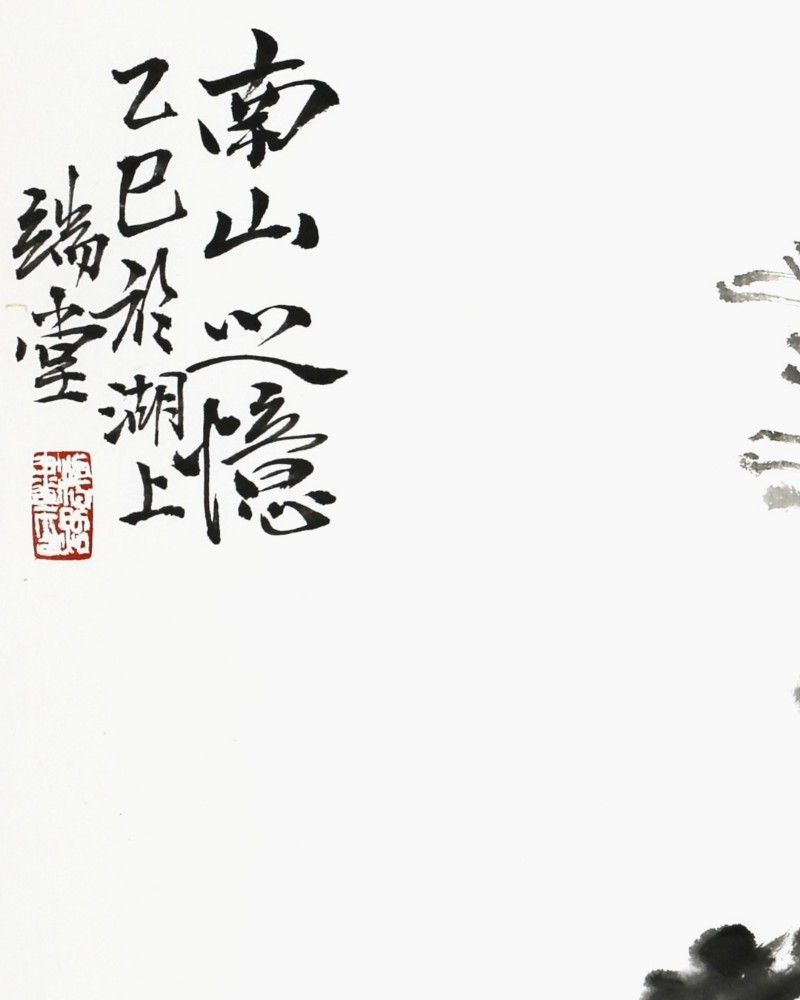 南山之憶
乙巳於湖上
端堂